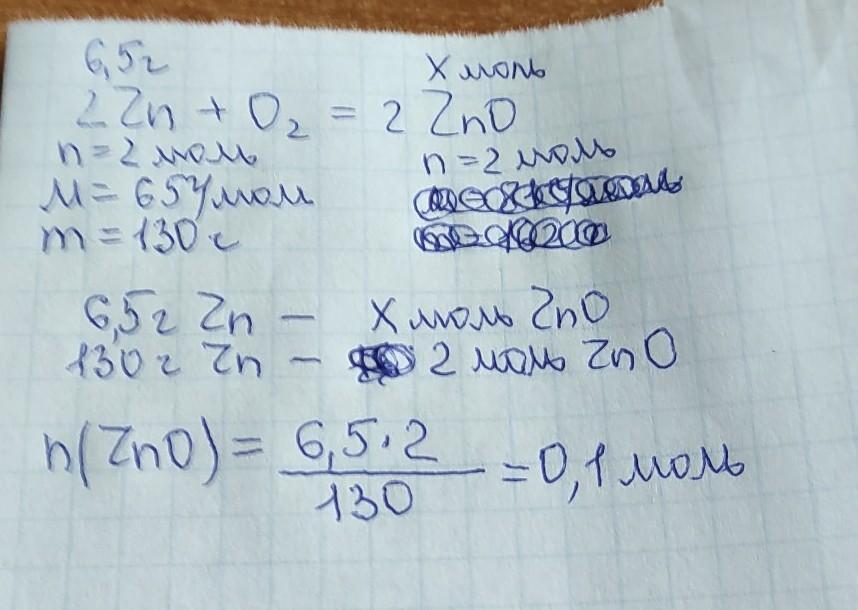 6,5г х моль
2 Zn + O₂ = 2 ZnO
n = 2 моль n = 2 моль
M = 65г/мол
m = 130 г
6,5г Zn – х моль ZnO
130г Zn – 2 моль ZnO
n(ZnO) = 6,5·2 / 130 = 0,1 моль